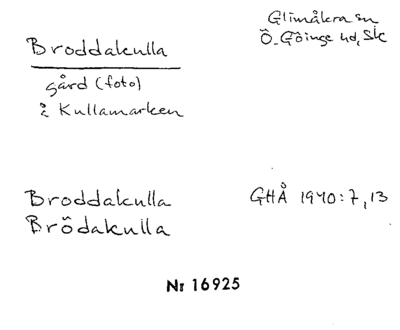 Glimåkra sn
Ö. Göinge hd, Sk
Broddakulla
gård (foto)
i Kullamarken
Broddakulla GHÅ 1940:7, 13
Brödakulla
Nr 16925